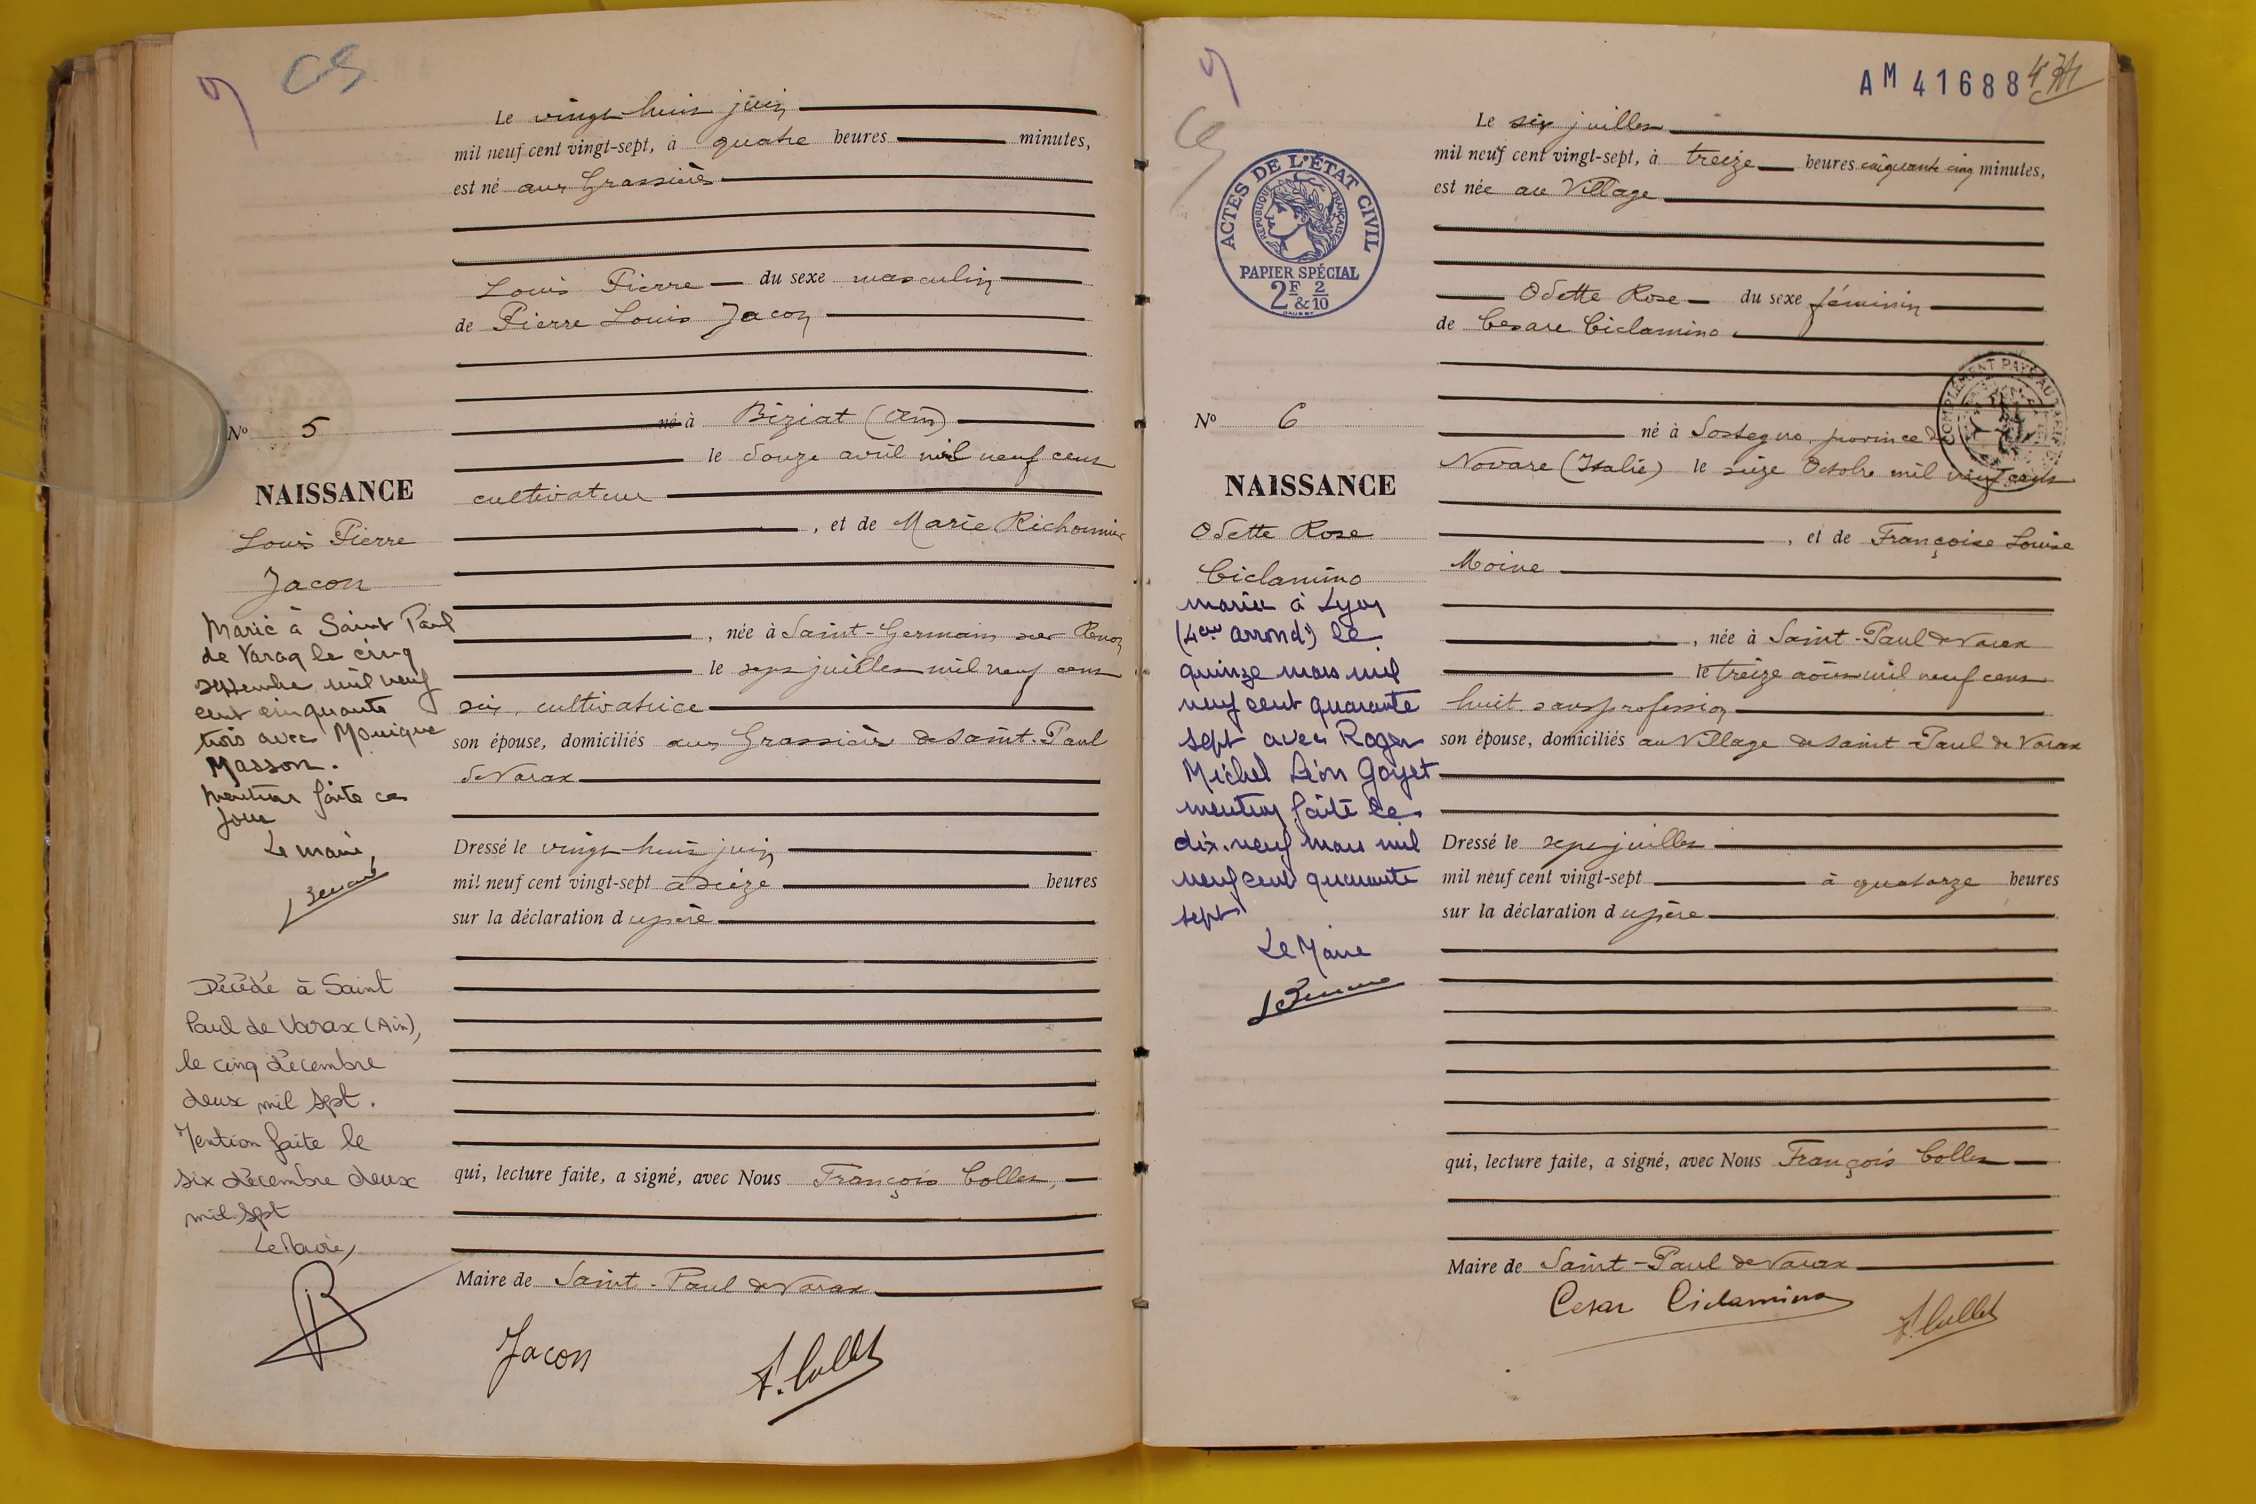 Le vingt huit juin
mil neuf cent vingt-sept, à quatre heures minutes,
est né aux Grassières
Louis Pierre du sexe masculin
de Pierre Louis Jacon
né à Biziat (Ain)
le douze avril mil neuf cent
cultivateur
, et de Marie Richonnier
, née à Saint-Germain sur Renon
le sept juillet mil neuf cent
six, cultivatrice
son épouse, domiciliés aux Grassières de Saint-Paul
de Varax
Dressé le vingt huit juin
mil neuf cent vingt-sept à seize heures
sur la déclaration du père
qui, lecture faite, a signé, avec Nous François Collet,
Maire de Saint-Paul de Varax
Jacon
F. Collet
No 5
NAISSANCE
Louis Pierre
Jacon
Marié à Saint Paul
de Varax le cinq
septembre mil neuf
cent cinquante
trois avec Monique
Masson.
Mention faite ce
jour
Le maire,
Décédé à Saint
Paul de Varax (Ain),
le cinq décembre
deux mil sept.
Mention faite le
six décembre deux
mil sept
Le Maire,
AM 41688
Le six juillet
mil neuf cent vingt-sept, à treize heures cinquante cinq minutes,
est née au Village
Odette Rose du sexe féminin
de Cesare Ciclamino
né à Sostegno, province de
Novare (Italie) le seize Octobre mil neuf cent
, et de Françoise Louise
Moine
, née à Saint-Paul de Varax
le treize août mil neuf cent
huit sans profession
son épouse, domiciliés au Village de Saint-Paul de Varax
Dressé le sept juillet
mil neuf cent vingt-sept à quatorze heures
sur la déclaration du père
qui, lecture faite, a signé, avec Nous François Collet
Maire de Saint-Paul de Varax
Cesar Ciclamino
F. Collet
ACTES DE L'ÉTAT CIVIL
RÉPUBLIQUE FRANÇAISE
PAPIER SPÉCIAL
2F & 2/10
COMPLÉMENT PAYÉ AU
No 6
NAISSANCE
Odette Rose
Ciclamino
mariée à Lyon
(4eme arrondt) le
quinze mars mil
neuf cent quarante
sept avec Roger
Michel Léon Goyet
mention faite le
dix-neuf mars mil
neuf cent quarante
sept
Le Maire